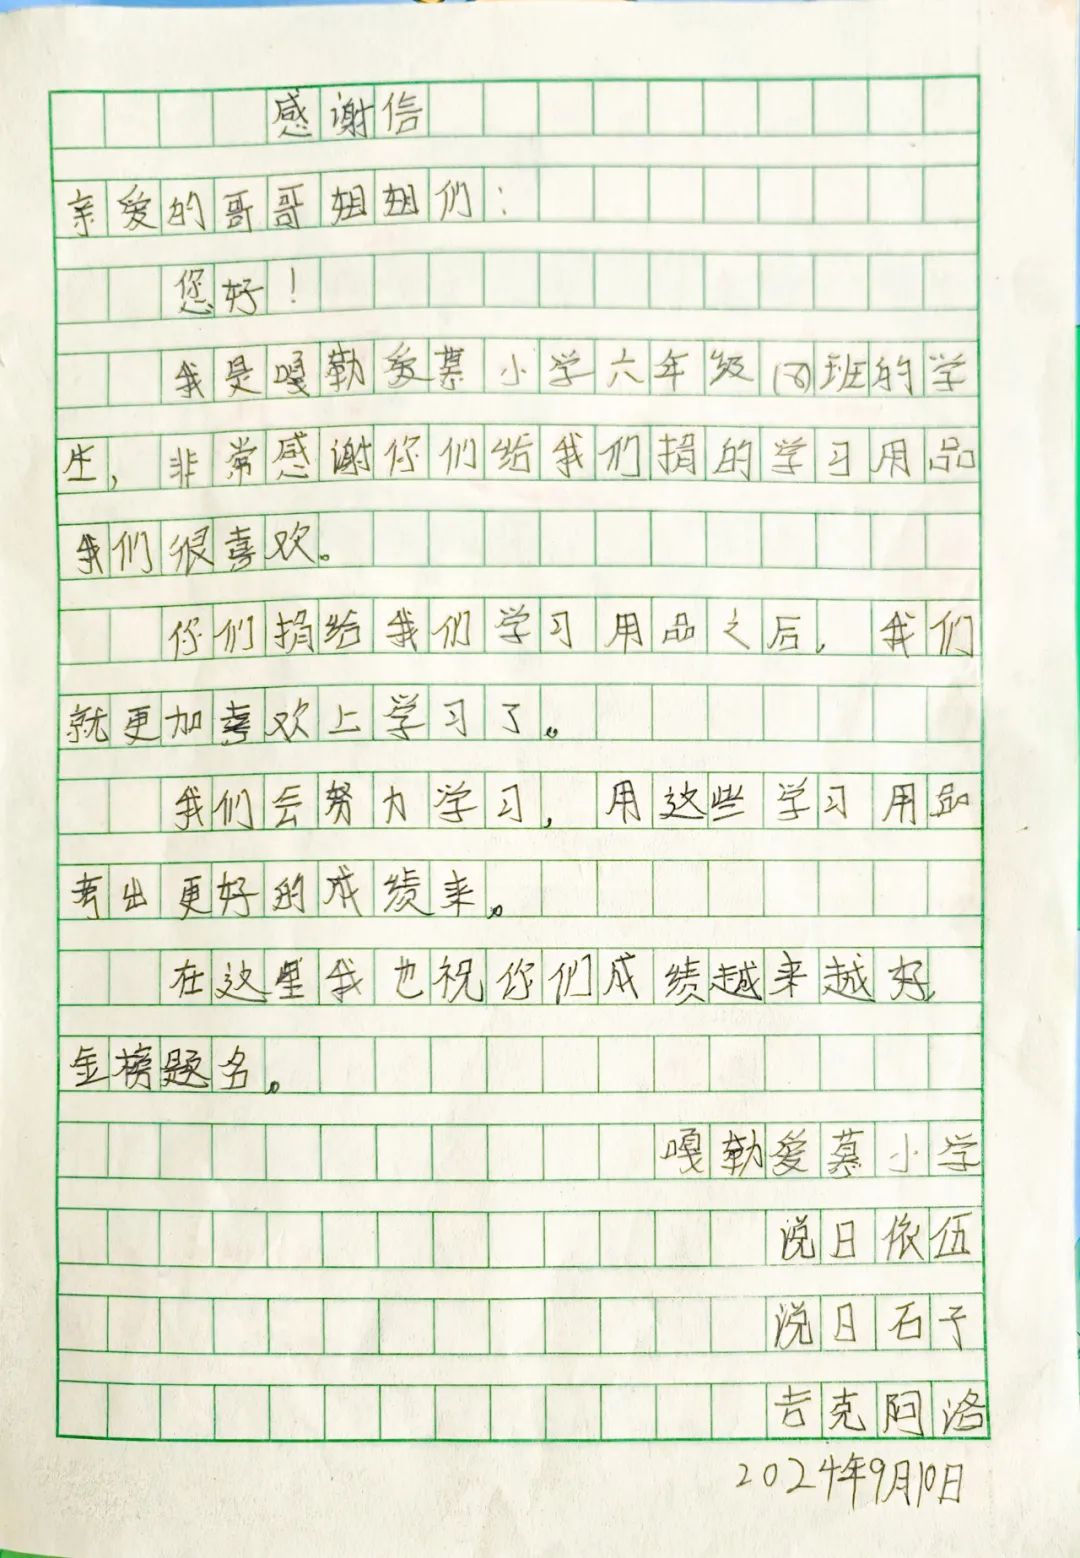 感谢信
亲爱的哥哥姐姐们：
您好！
我是嘎勒爱慕小学六年级(四)班的学
生，非常感谢你们给我们捐的学习用品
我们很喜欢。
你们捐给我们学习用品之后，我们
就更加喜欢上学习了。
我们会努力学习，用这些学习用品
考出更好的成绩来。
在这里我也祝你们成绩越来越好，
金榜题名。
嘎勒爱慕小学
说日依伍
说日石子
吉克阿洛
2024年9月10日